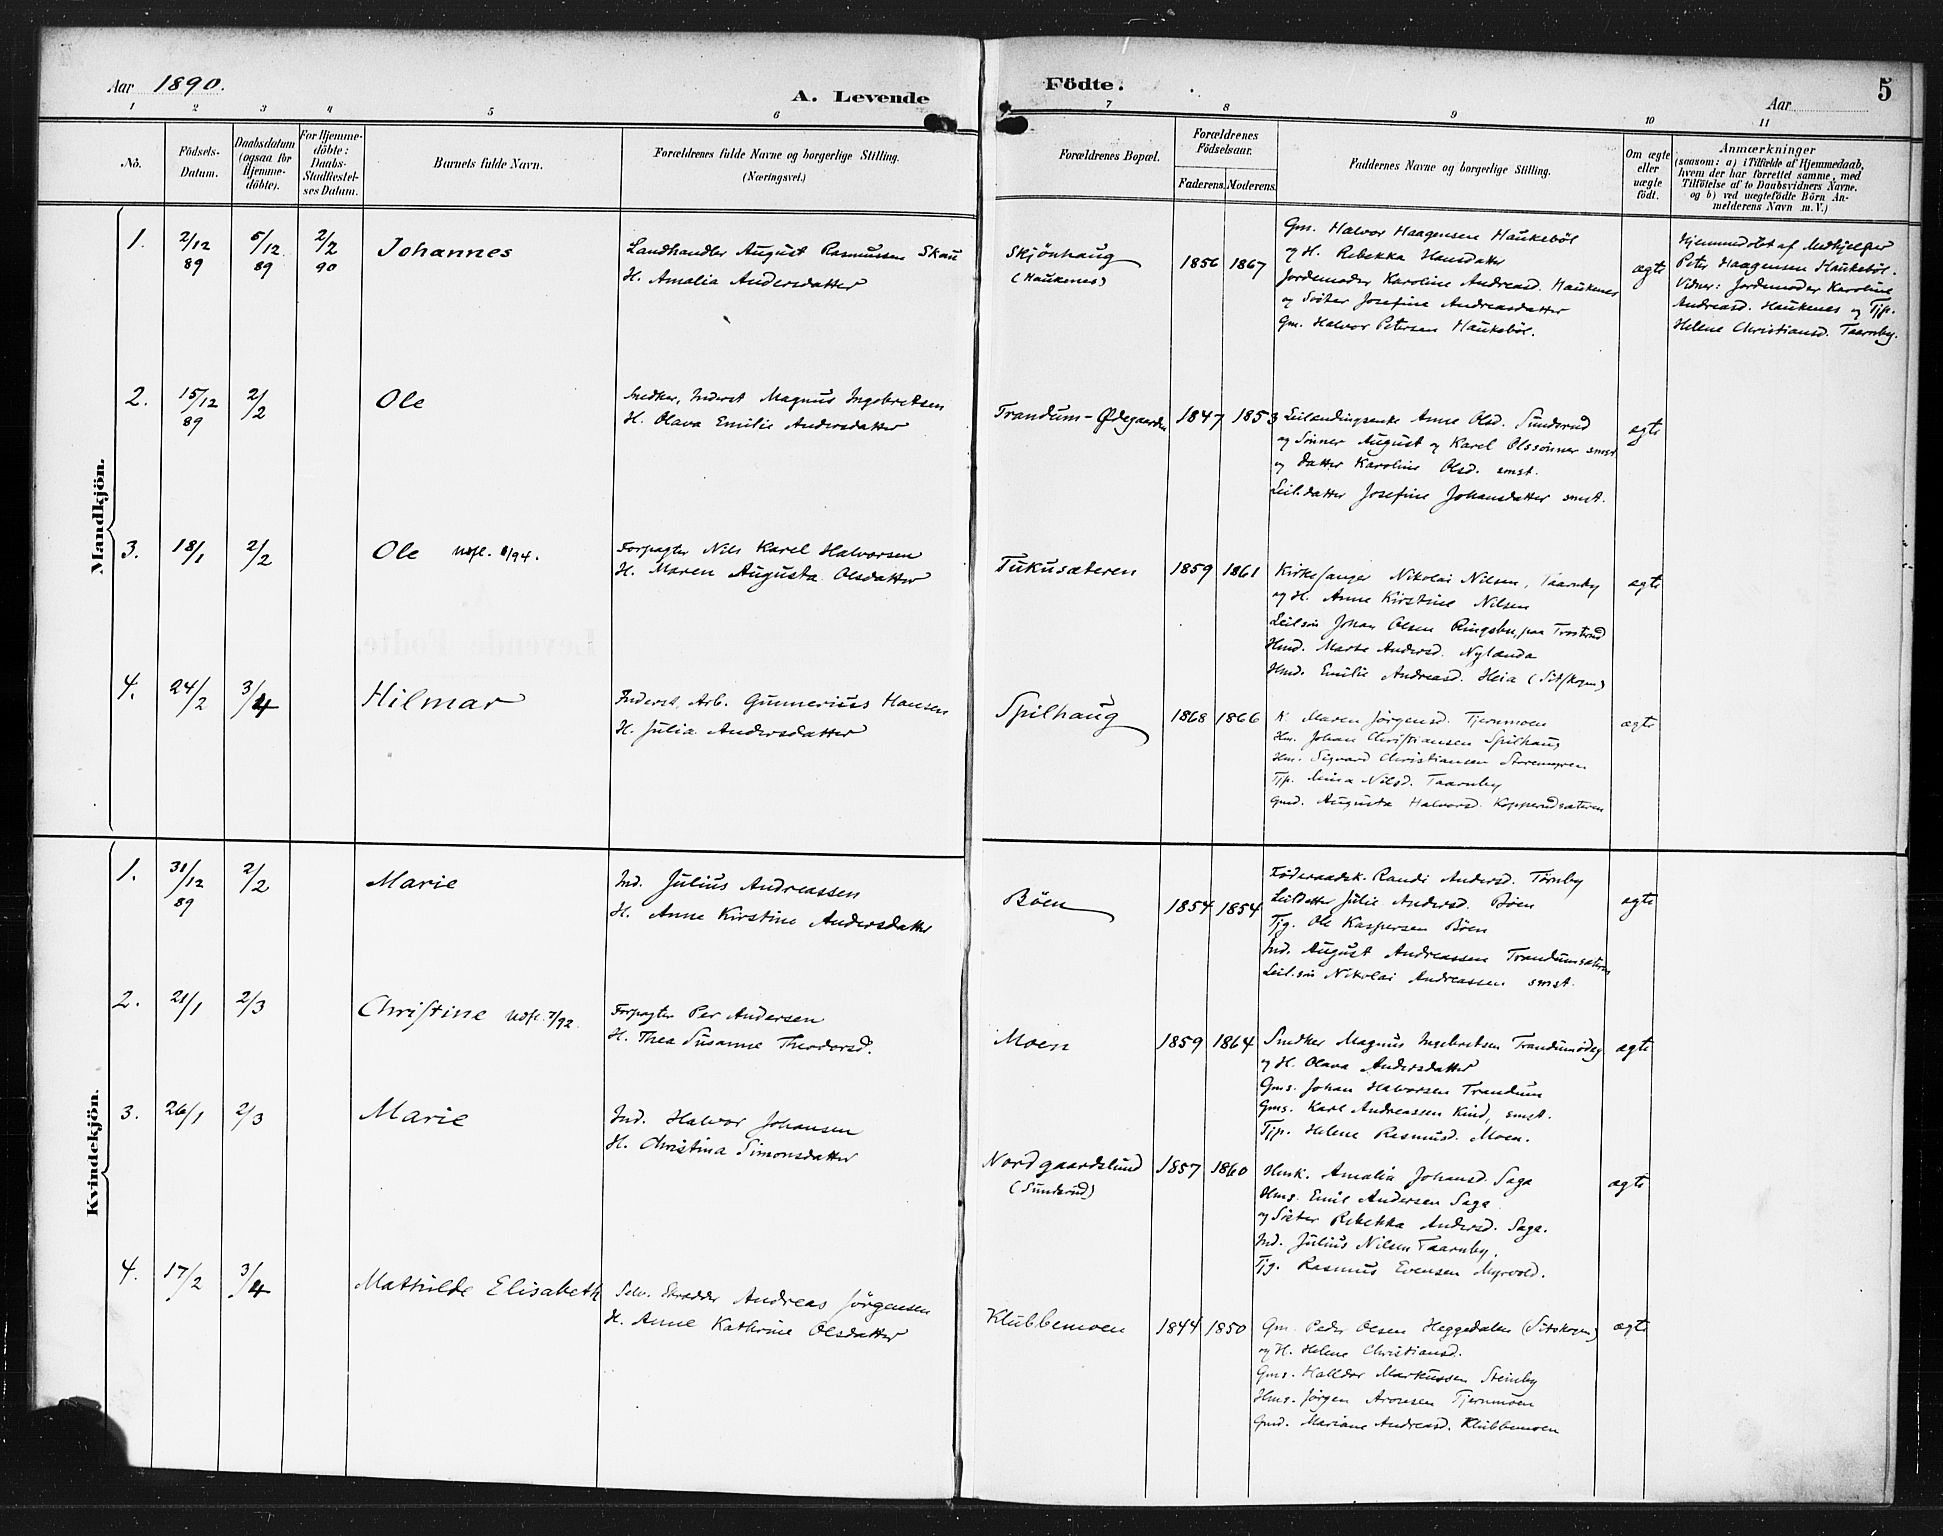 Aar 1890.
A. Levende
Födte.
Aar
5
1 2 3 4 5 6 7 8 9 10 11
No.
Födsels-Datum.
Daabsdatum (ogsaa for Hjemme-döbte).
For Hjemme-döbte: Daabs-Stadfæstel-ses Datum.
Barnets fulde Navn.
Forældrenes fulde Navne og borgerlige Stilling.
(Næringsvei.)
Forældrenes Bopæl.
Forældrenes Födselsaar.
Faderens. Moderens.
Faddernes Navne og borgerlige Stilling.
Om ægte eller uægte födt.
Anmærkninger
(saasom: a) i Tilfælde af Hjemmedaab,
hvem der har forrettet samme, med
Tilföielse af to Daabsvidners Navne.
og b) ved uægtefödte Börn An-
melderens Navn m. V.)
Mandkjön.
1. 2/12 89 5/12 89 2/2 90 Johannes
Landhandler August Rasmussen Skau
H. Amalia Andersdatter
Skjönhaug
(Haukenes)
1856 1867
Gm. Halvor Haagensen Haukeböl
og H. Rebekka Hansdatter
Jordemoder Karoline Andreasd. Haukenes
og Söster Josefine Andreasdatter
Gm. Halvor Petersen Hauksböl.
ægte
Hjemmedöbt af Medhjelper
Peter Haagensen Haukeböl.
Vidner: Jordemoder Karoline
Andreasd. Haukenes og Tjp.
Helene Christiansd. Taarnby.
2. 15/12 89 2/2 Ole
Snedker, Inderst Magnus Ingebretsen
H. Olava Emilie Andersdatter
Trandum-Ødegaarden
1847 1853
Leilændingsenke Anne Olsd. Sunderud
og Sönner August og Karel Olssönner smst
og Datter Karoline Olsd. smst.
Leil.datter Josefine Johansdatter smst.
ægte
3. 18/1 2/2 Ole Udfl. 8/94.
Forpagter Nils Karel Halvorsen
H. Maren Augusta Olsdatter
Tukusæteren
1859 1861
Kirkesanger Nikolai Nilsen, Taarnby
og H. Anne Kirstine Nilsen
Leilsön Johan Olsen Ringsby, paa
Hmd. Marte Andersd. Nylænda
Hmd. Emilie Andreasd. Heia (Sötskogn)
ægte
4. 24/2 3/4 Hilmar
Inderst, Arb. Gunnerius Hansen
H. Julia Andersdatter
Spilhaug
1868 1866
K. Maren Jörgensd. Tjernmoen
Hm. Johan Christiansen Spilhaug
Hm. Sigvard Christiansen Storemyren
Tjp. Mina Nilsd. Taarnby
Gmd. Augusta Halvorsd. Kopperudsæteren
ægte
Kvindekjön.
1. 31/12 89 2/2 Marie
Ind. Julius Andreassen
H. Anne Kirstine Andersdatter
Böen
1854 1854
Föderaadsk. Randi Andersd. Törnby
Leildatter Julie Andersd. Böen
Tjg. Ole Kaspersen Böen
Ind. August Andreassen Trandumsæteren
Leil.sön Nikolai Andreassen smst.
ægte
2. 21/1 2/3 Christine Udfl. 7/92.
Forpagter Per Andersen
H. Thea Susanne Theodorsd.
Moen
1859 1864
Snedker Magnus Ingebretsen Trandumödeg
og H. Olava Andersdatter
Gms. Johan Halvorsen Trandum
Gms. Karl Andreassen Kind, smst.
Tjp. Helene Rasmusd. Moen.
ægte
3. 26/1 2/3 Marie
Ind. Halvor Johansen
H. Christina Simonsdatter
Nordgaardslund
(Sunderud)
1857 1860
Husk. Amalia Johansd. Saga
Hms. Emil Andersen Saga
og Söster Rebekka Andersd. Saga.
Ind. Julius Nilsen Taarnby.
Tjg. Rasmus Evensen Myrvold.
ægte
4. 17/2 3/4 Mathilde Elisabeth
Selv. Skrædder Andreas Jörgensen
H. Anne Kathrine Olsdatter
Klubbemoen
1844 1850
Gm. Peder Olsen Heggedalen (Sötskogn)
og H. Helene Christiansd.
Gms. Halldor Markussen Steinby
Hms. Jörgen Aronsen Tjernmoen
Gmd. Mariane Andreasd. Klubbemoen
ægte